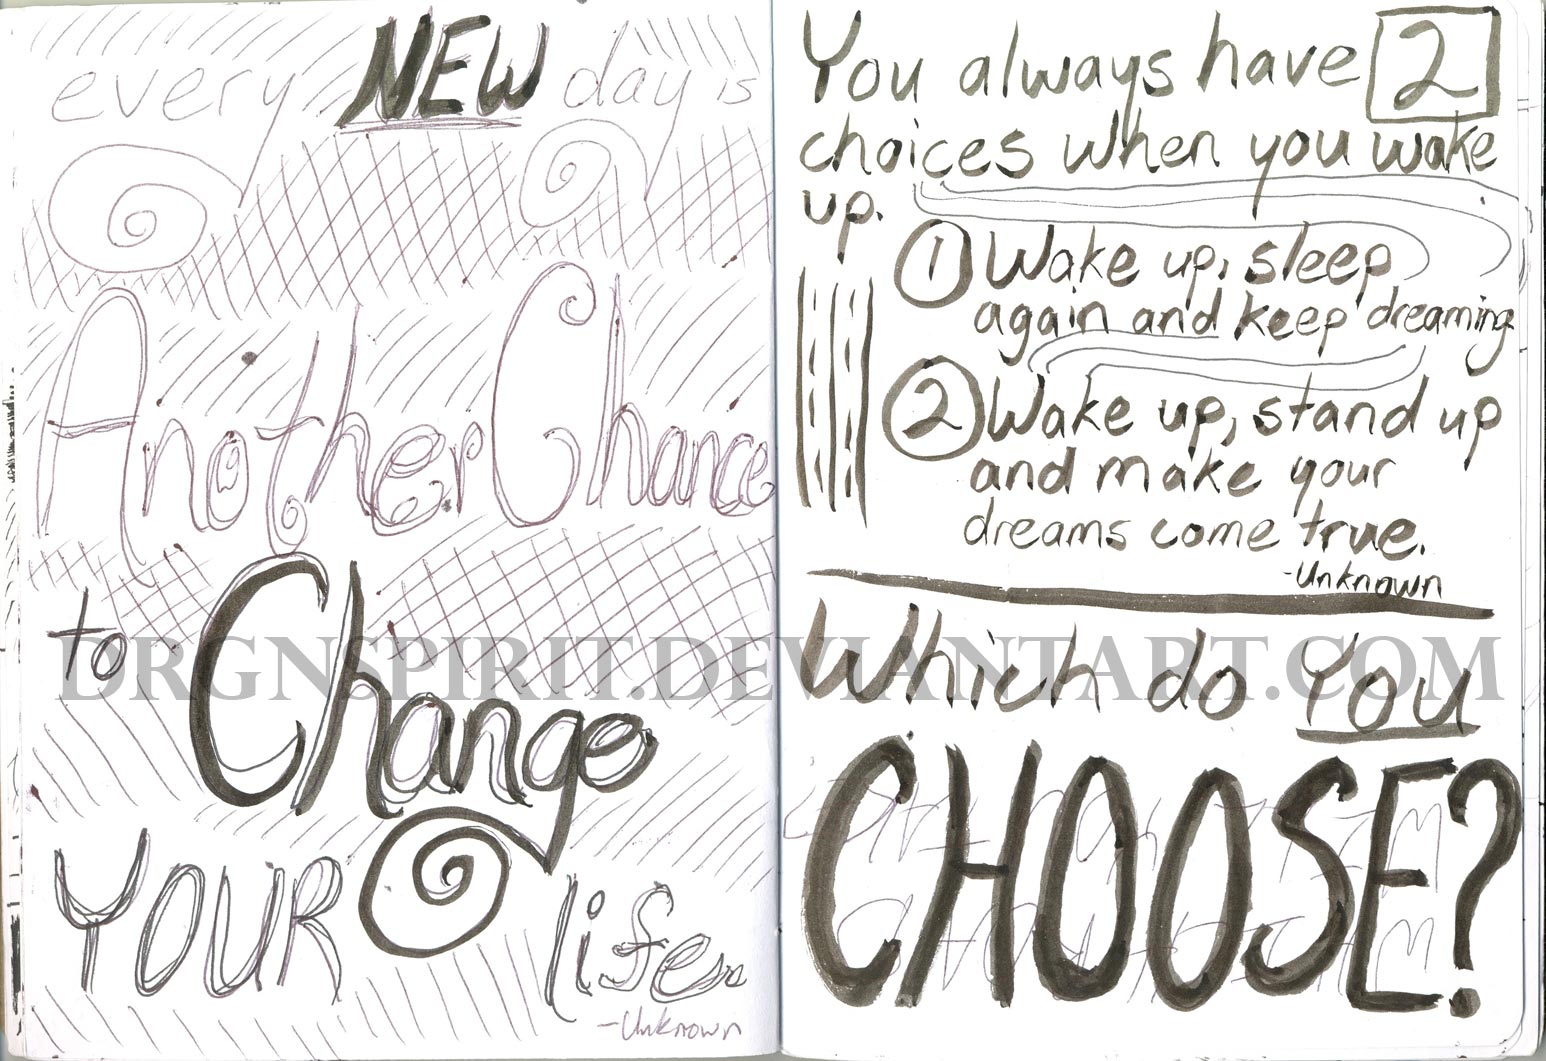 every NEW day is
Another Chance
to Change
YOUR life.
-Unknown
You always have 2
choices when you wake
up.
1 Wake up, sleep
again and keep dreaming
2 Wake up, stand up
and make your
dreams come true.
-Unknown
Which do You
CHOOSE?
DRGNSPIRIT.DEVIANTART.COM